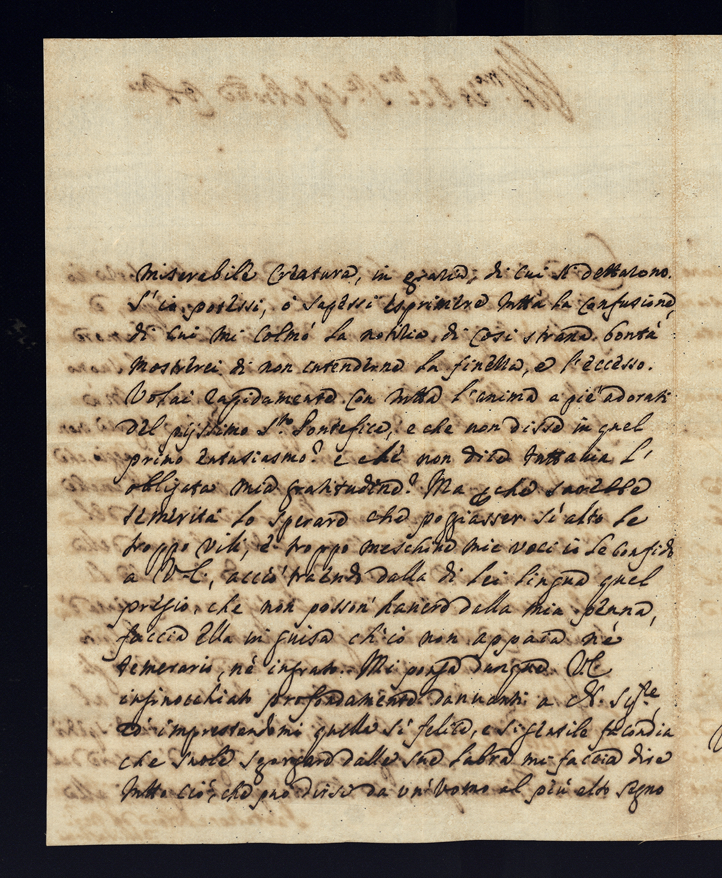 miserabile Creatura, in grazia, di cui N. dettarono.
S'io potessi, o sapessi esprimere tutta la confusione,
di cui mi colmò la notizia di così strana bontà
mostrerei di non intenderne la finezza, e l'eccesso.
Volai rapidamente con tutta l'anima a piè adorati
del pijssimo Sto Pontefice, e che non disse in quel
primo entusiasmo? e che non dice tuttavia l'
obligata mia gratitudine? Ma che sarebbe
temerità lo sperare che poggiasser sì alto le
troppo vili, e troppo meschine mie voci io le confido
a V.E., acciò traendo dalla di lei lingua quel
pregio, che non posson' havere dalla mia penna,
faccia Ella in guisa ch'io non appaia né
temerario, né ingrato. Mi ponga dunque V.E.
inginocchiato profondamente davvanti a N. Sigre,
ed imprestandomi quella sì felice, e sì gentile facondia
che suole sgorgare dalle sue labra mi faccia dire
tutto ciò, che può dirsi da un' Uomo al più alto segno